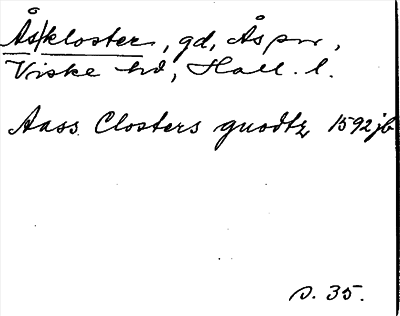 Ås/kloster, gd, Ås sn,
Viske hd, Hall. l.
Aass Closters guodtz 1592 jb
s. 35.